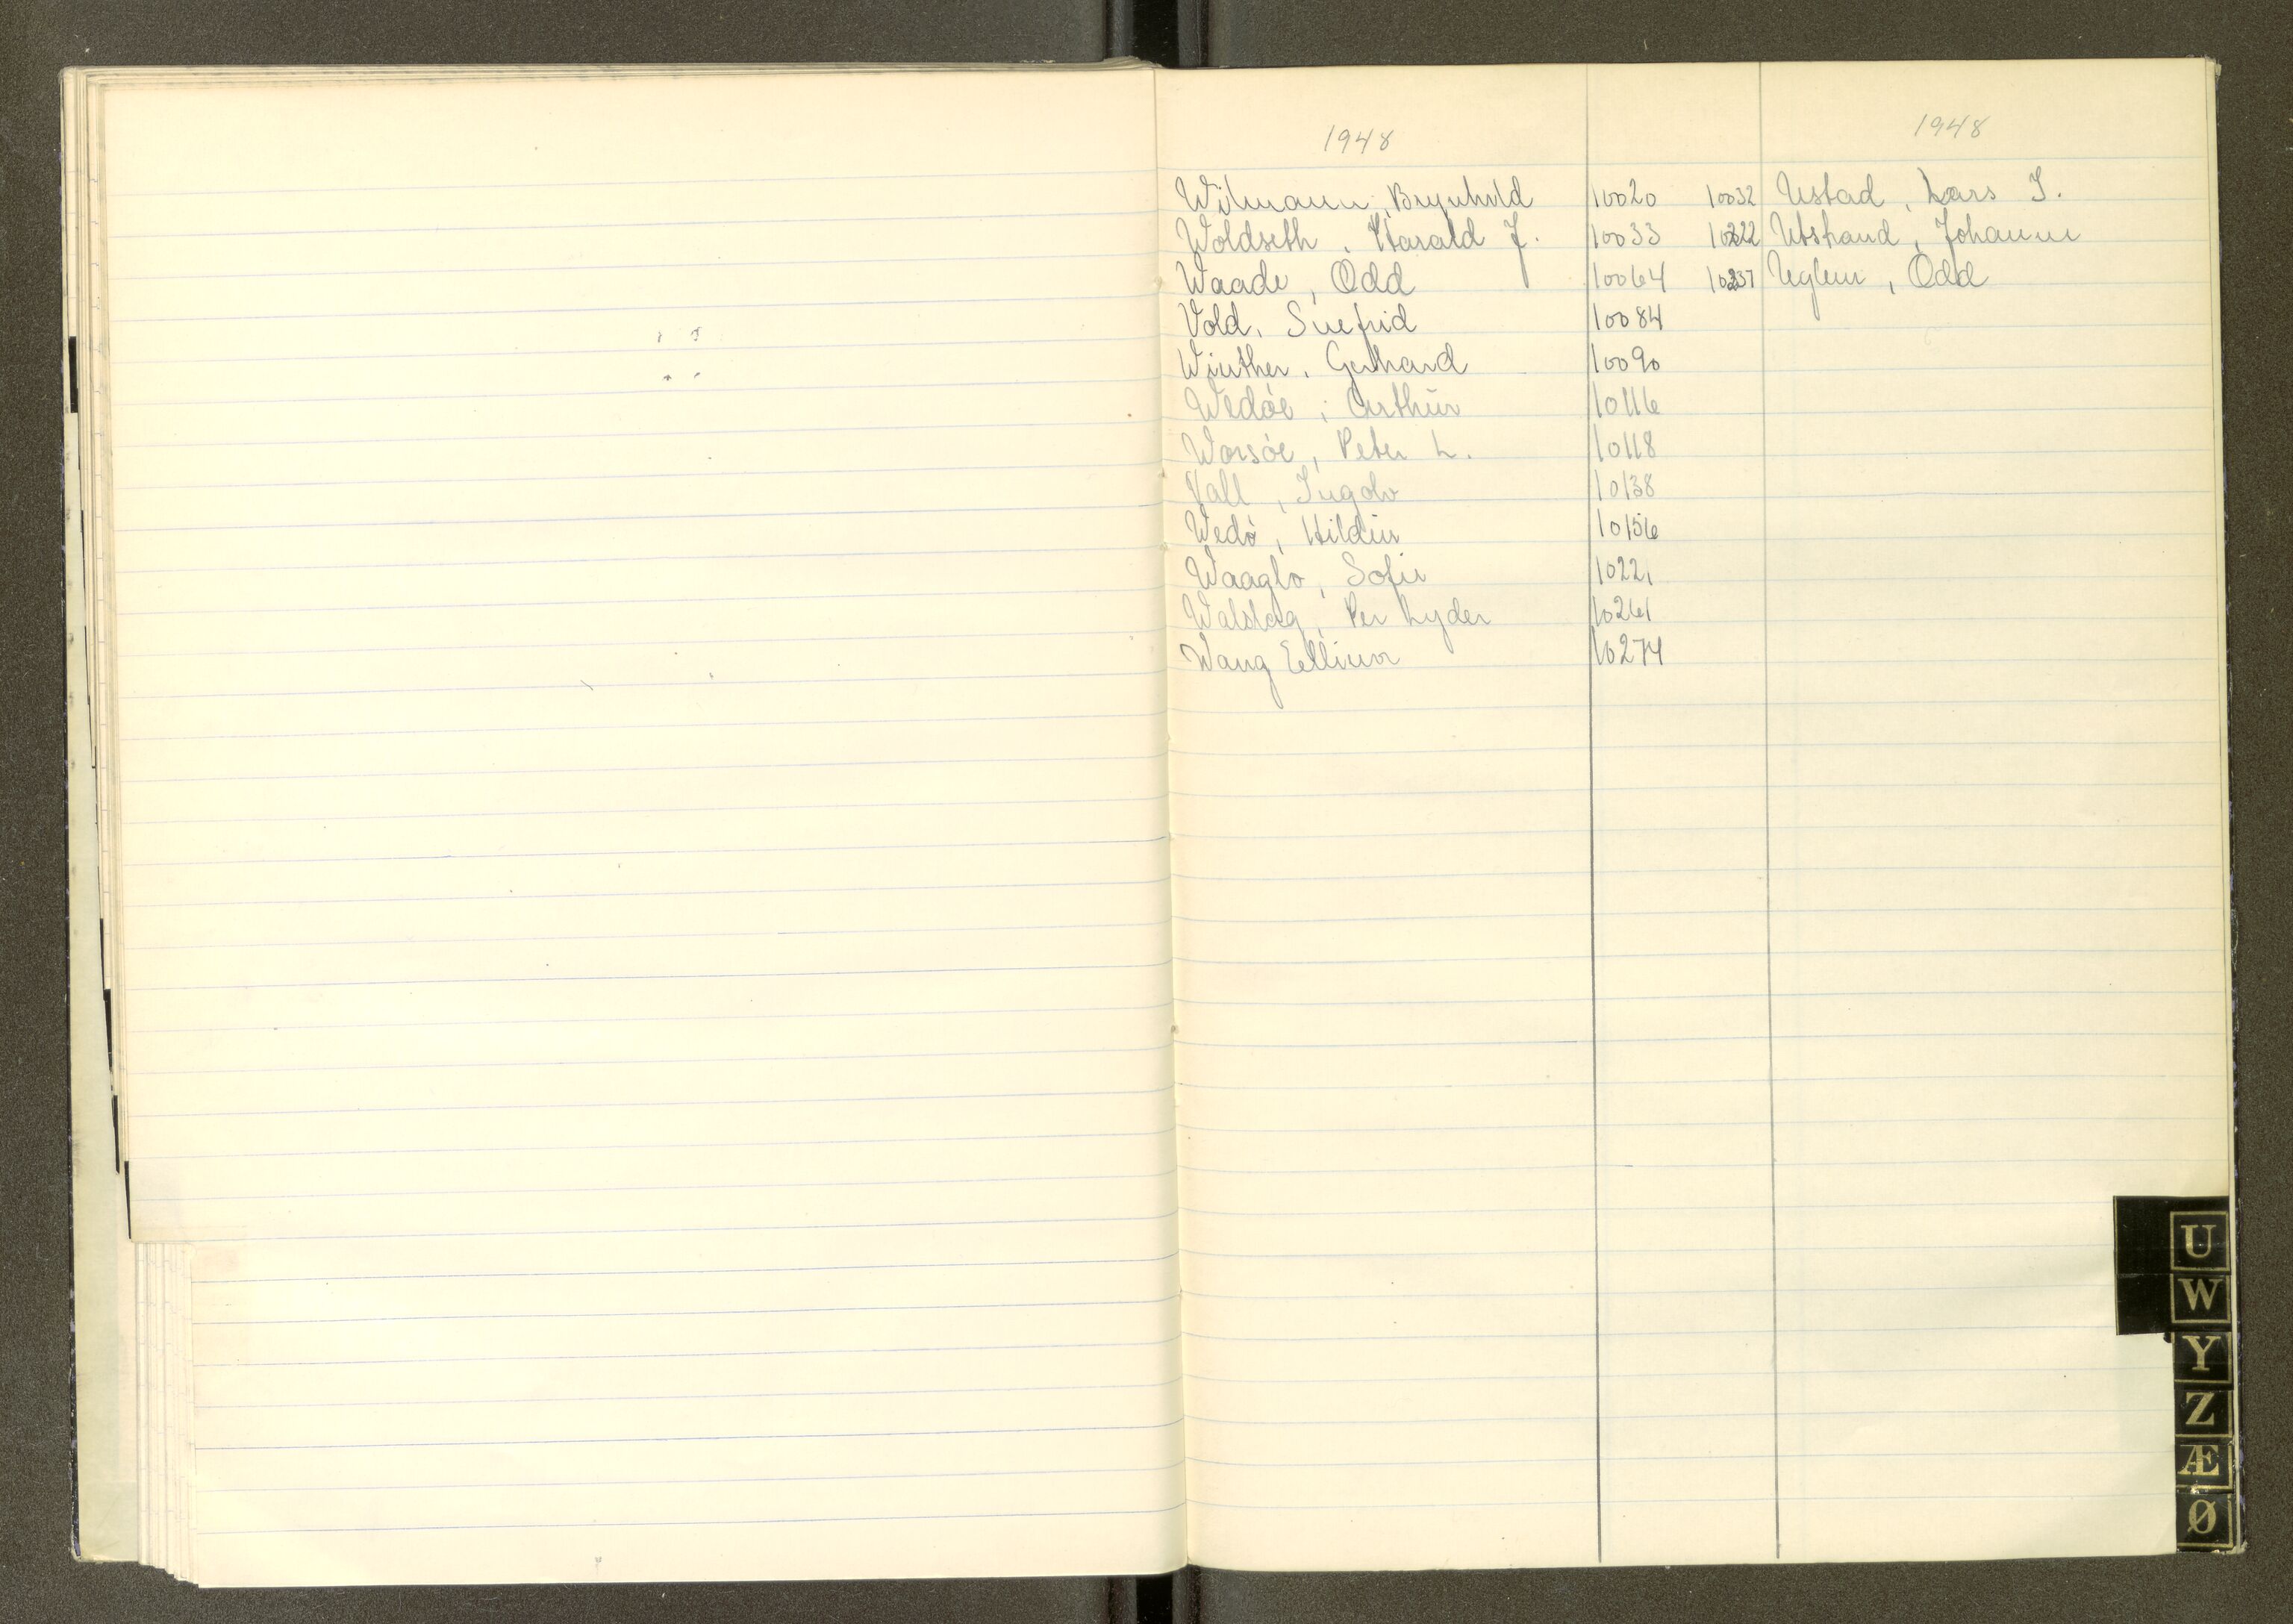 1948
1948
Wilmann, Brynhild 10020 10032 Ustad, Lars J.
Woldseth, Harald J. 10033 10222 Utstrand, Johanne
Waade, Odd 10064 10237 Uglem, Odd
Vold, Snefrid 10084
Winther, Gerhard 10090
Wedøe, Arthur 10116
Worsøe, Peter L. 10118
Vall, Ingolv 10138
Wedø, Hildur 10156
Sofie 10221
Walstag, Per Lyder 10261
Wang Ellinor 10274
U
W
Y
Z
Æ
Ø